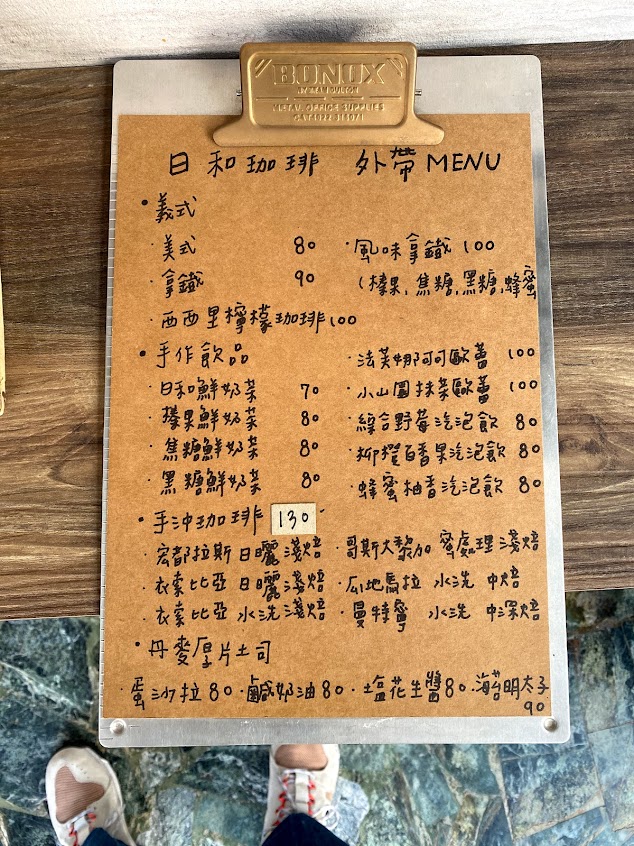 BONUX
METAL OFFICE SUPPLIES
日和珈琲 外帶 MENU
• 義式
· 美式 80
· 拿鐵 90
· 西西里檸檬珈琲 100
· 風味拿鐵 100
(榛果, 焦糖, 黑糖, 蜂蜜
• 手作飲品
· 日和鮮奶茶 70
· 榛果鮮奶茶 80
· 焦糖鮮奶茶 80
· 黑糖鮮奶茶 80
· 法芙娜可可歐蕾 100
· 小山園抹茶歐蕾 100
· 綜合野莓汽泡飲 80
· 柳橙百香果汽泡飲 80
· 蜂蜜柚香汽泡飲 80
• 手沖珈琲 130
· 宏都拉斯 日曬 淺焙
· 衣索比亞 日曬 淺焙
· 衣索比亞 水洗 淺焙
· 哥斯大黎加 蜜處理 淺焙
· 瓜地馬拉 水洗 中焙
· 曼特寧 水洗 中深焙
• 丹麥厚片土司
· 蛋沙拉 80 · 鹹奶油 80 · 塩花生醬 80 · 海苔明太子 90